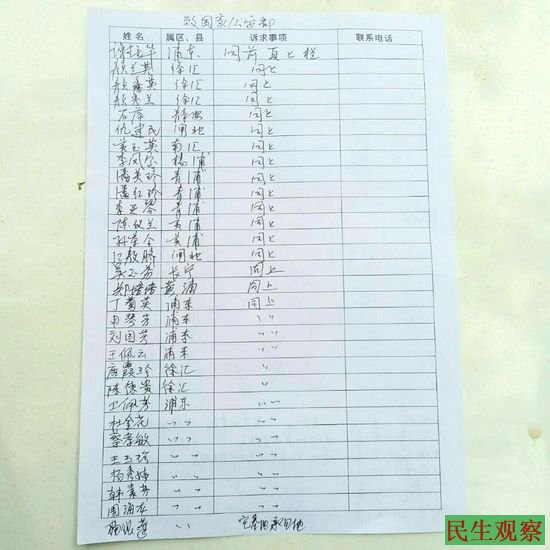 致国家公安部
姓名 属区、县 诉求事项 联系电话
浦东 同前页上栏
颜兰英 徐汇 同上
颜鑫英 徐汇 同上
颜来兰 徐汇 同上
石萍 静安 同上
仇建民 闸北 同上
黄玉英 南汇 同上
李凤 杨浦 同上
潘美珍 青浦 同上
潘红珍 青浦 同上
李亚琴 青浦 同上
陈仪兰 黄浦 同上
孙 黄浦 同上
江 闸北 同上
吴玉芬 长宁 同上
郑培培 黄浦 同上
丁菊英 浦东 同上
申琴芳 浦东 〃
刘国芳 浦东 〃
王佩云 浦东 〃
唐霞珍 徐汇 〃
陈穗贵 徐汇 〃
卫佩芳 浦东 〃
杜金花 〃 〃
蔡孝敏 〃 〃
王玉珍 〃 〃
杨秀 〃 〃
韩素芳 〃 〃
周海 〃 〃
〃 宅基地
民生观察